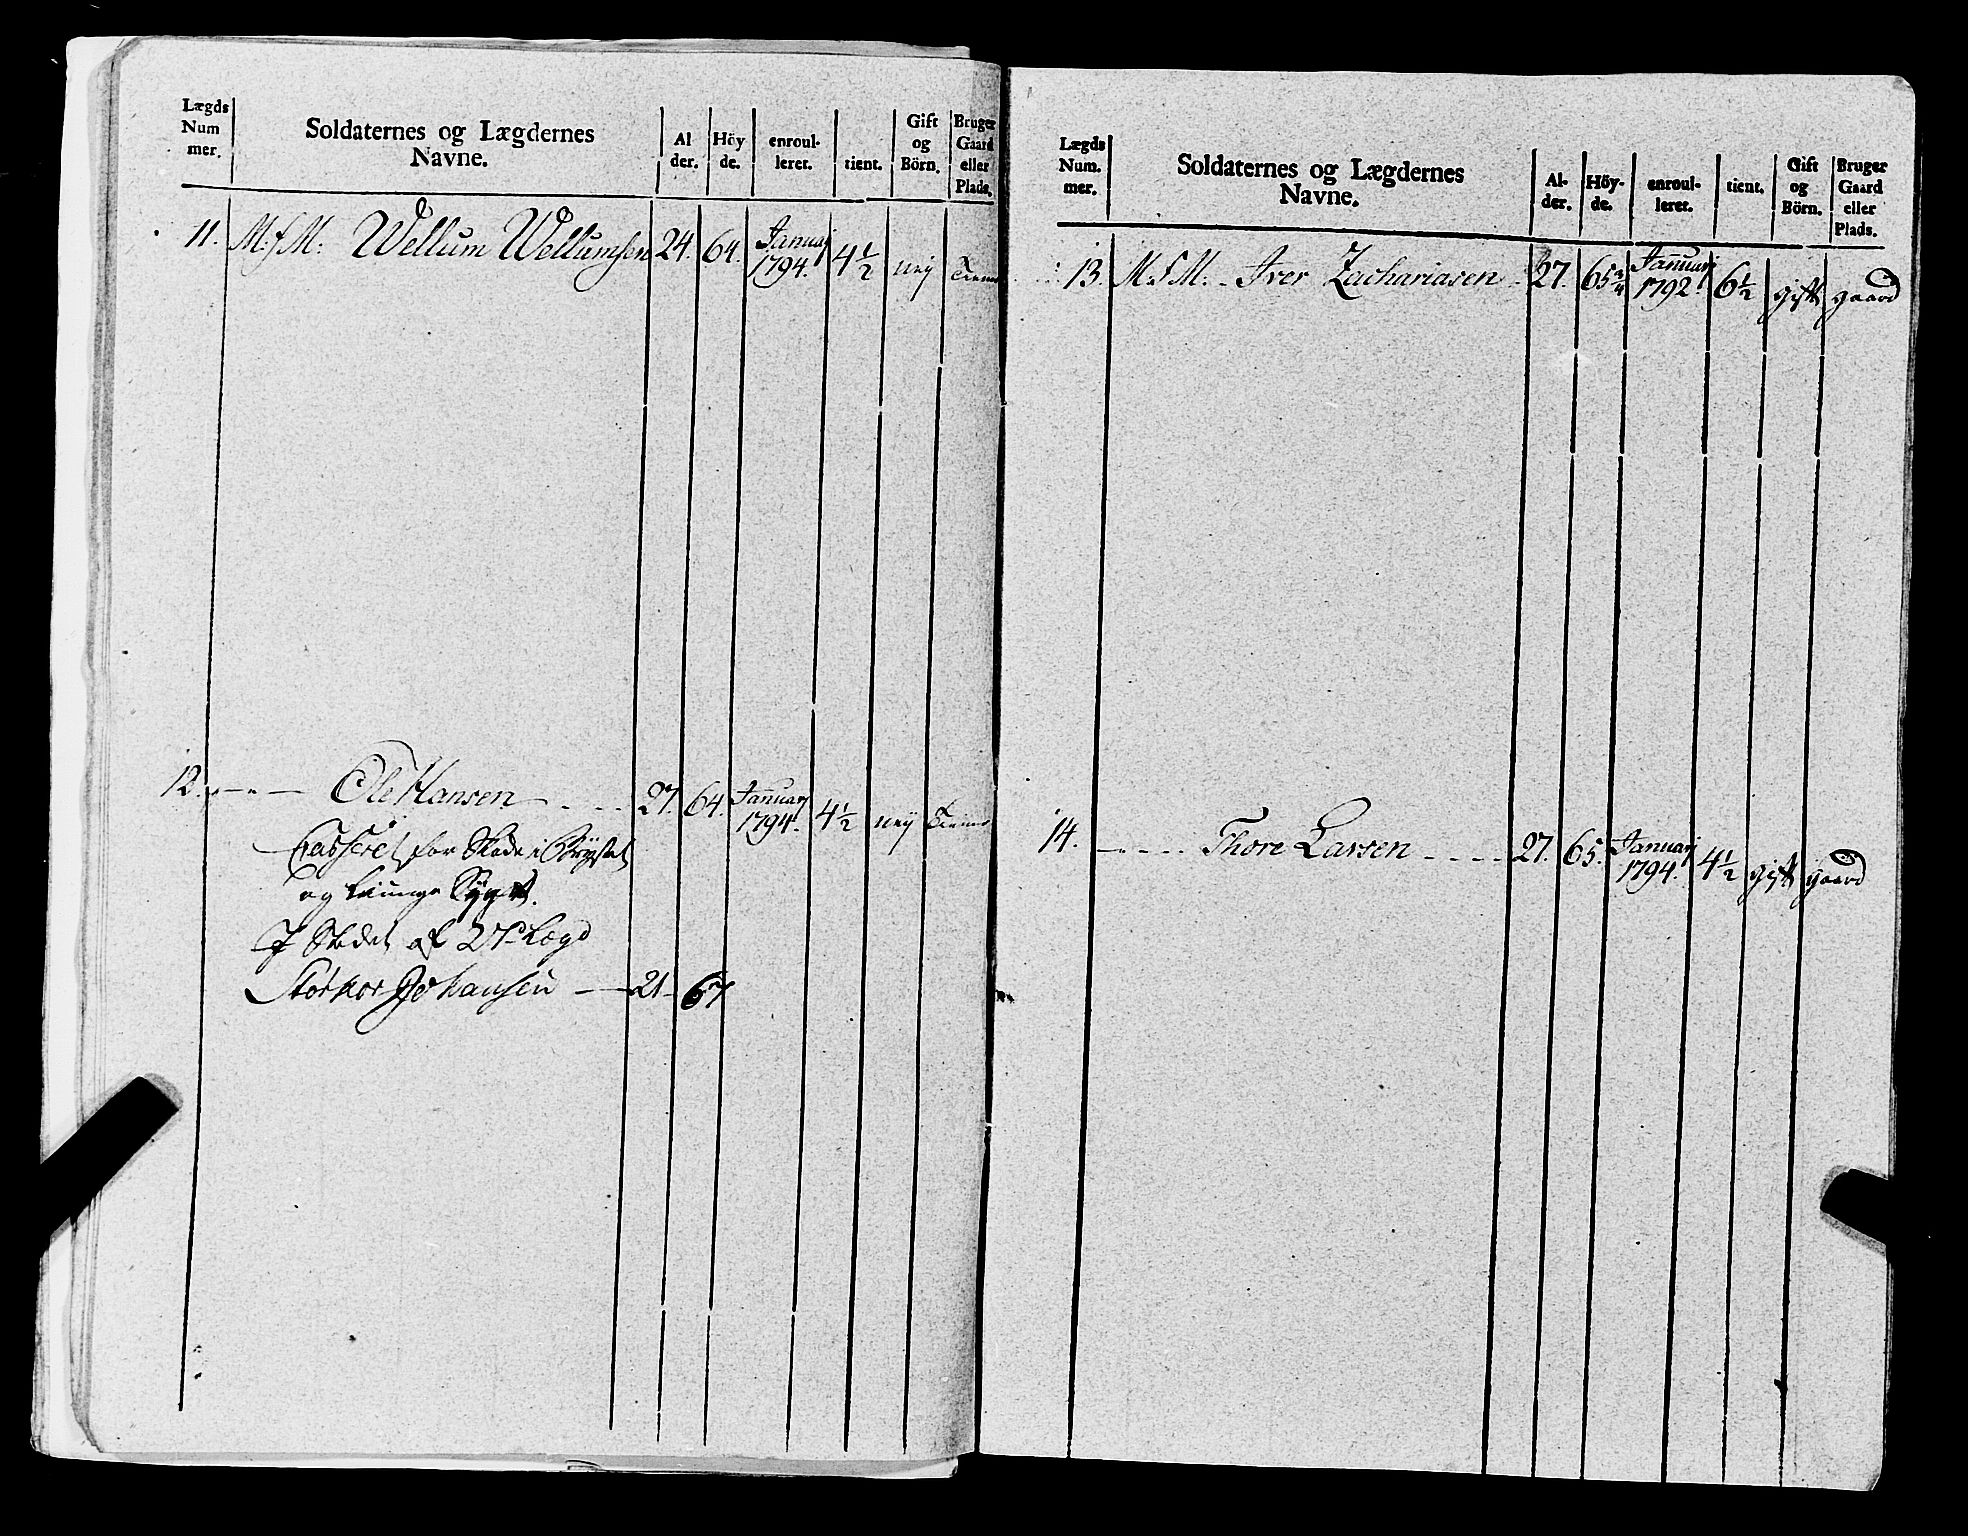 Lægds Num mer. Soldaternes og Lægdernes Navne. Al der. Höy de. enroul- leret. tient. Gift og Börn. Bruger Gaard eller Plads.
11. M. f M. Wellum Wellumsen 24. 64. Januarj 1794. 4 1/2 neij Tiener
12. Ole Hansen 27. 64. Januarj 1794. 4 1/2 neij Tiener
Casseret for Skade i Brystet
og Lunge Syge.
I Stedet af Lægd
Storkor Johansen 21 67
Lægds Num. mer. Soldaternes og Lægdernes Navne. Al- der. Höy- de. enroul- leret. tient. Gift og Börn. Bruger Gaard eller Plads.
13. M. f M. Iver Zachariasen 27. 65 3/4 Januarj 1792. 6 1/2 gift gaard
14. Thore Larsen 27. 65. Januarj 1794. 4 1/2 gift gaard